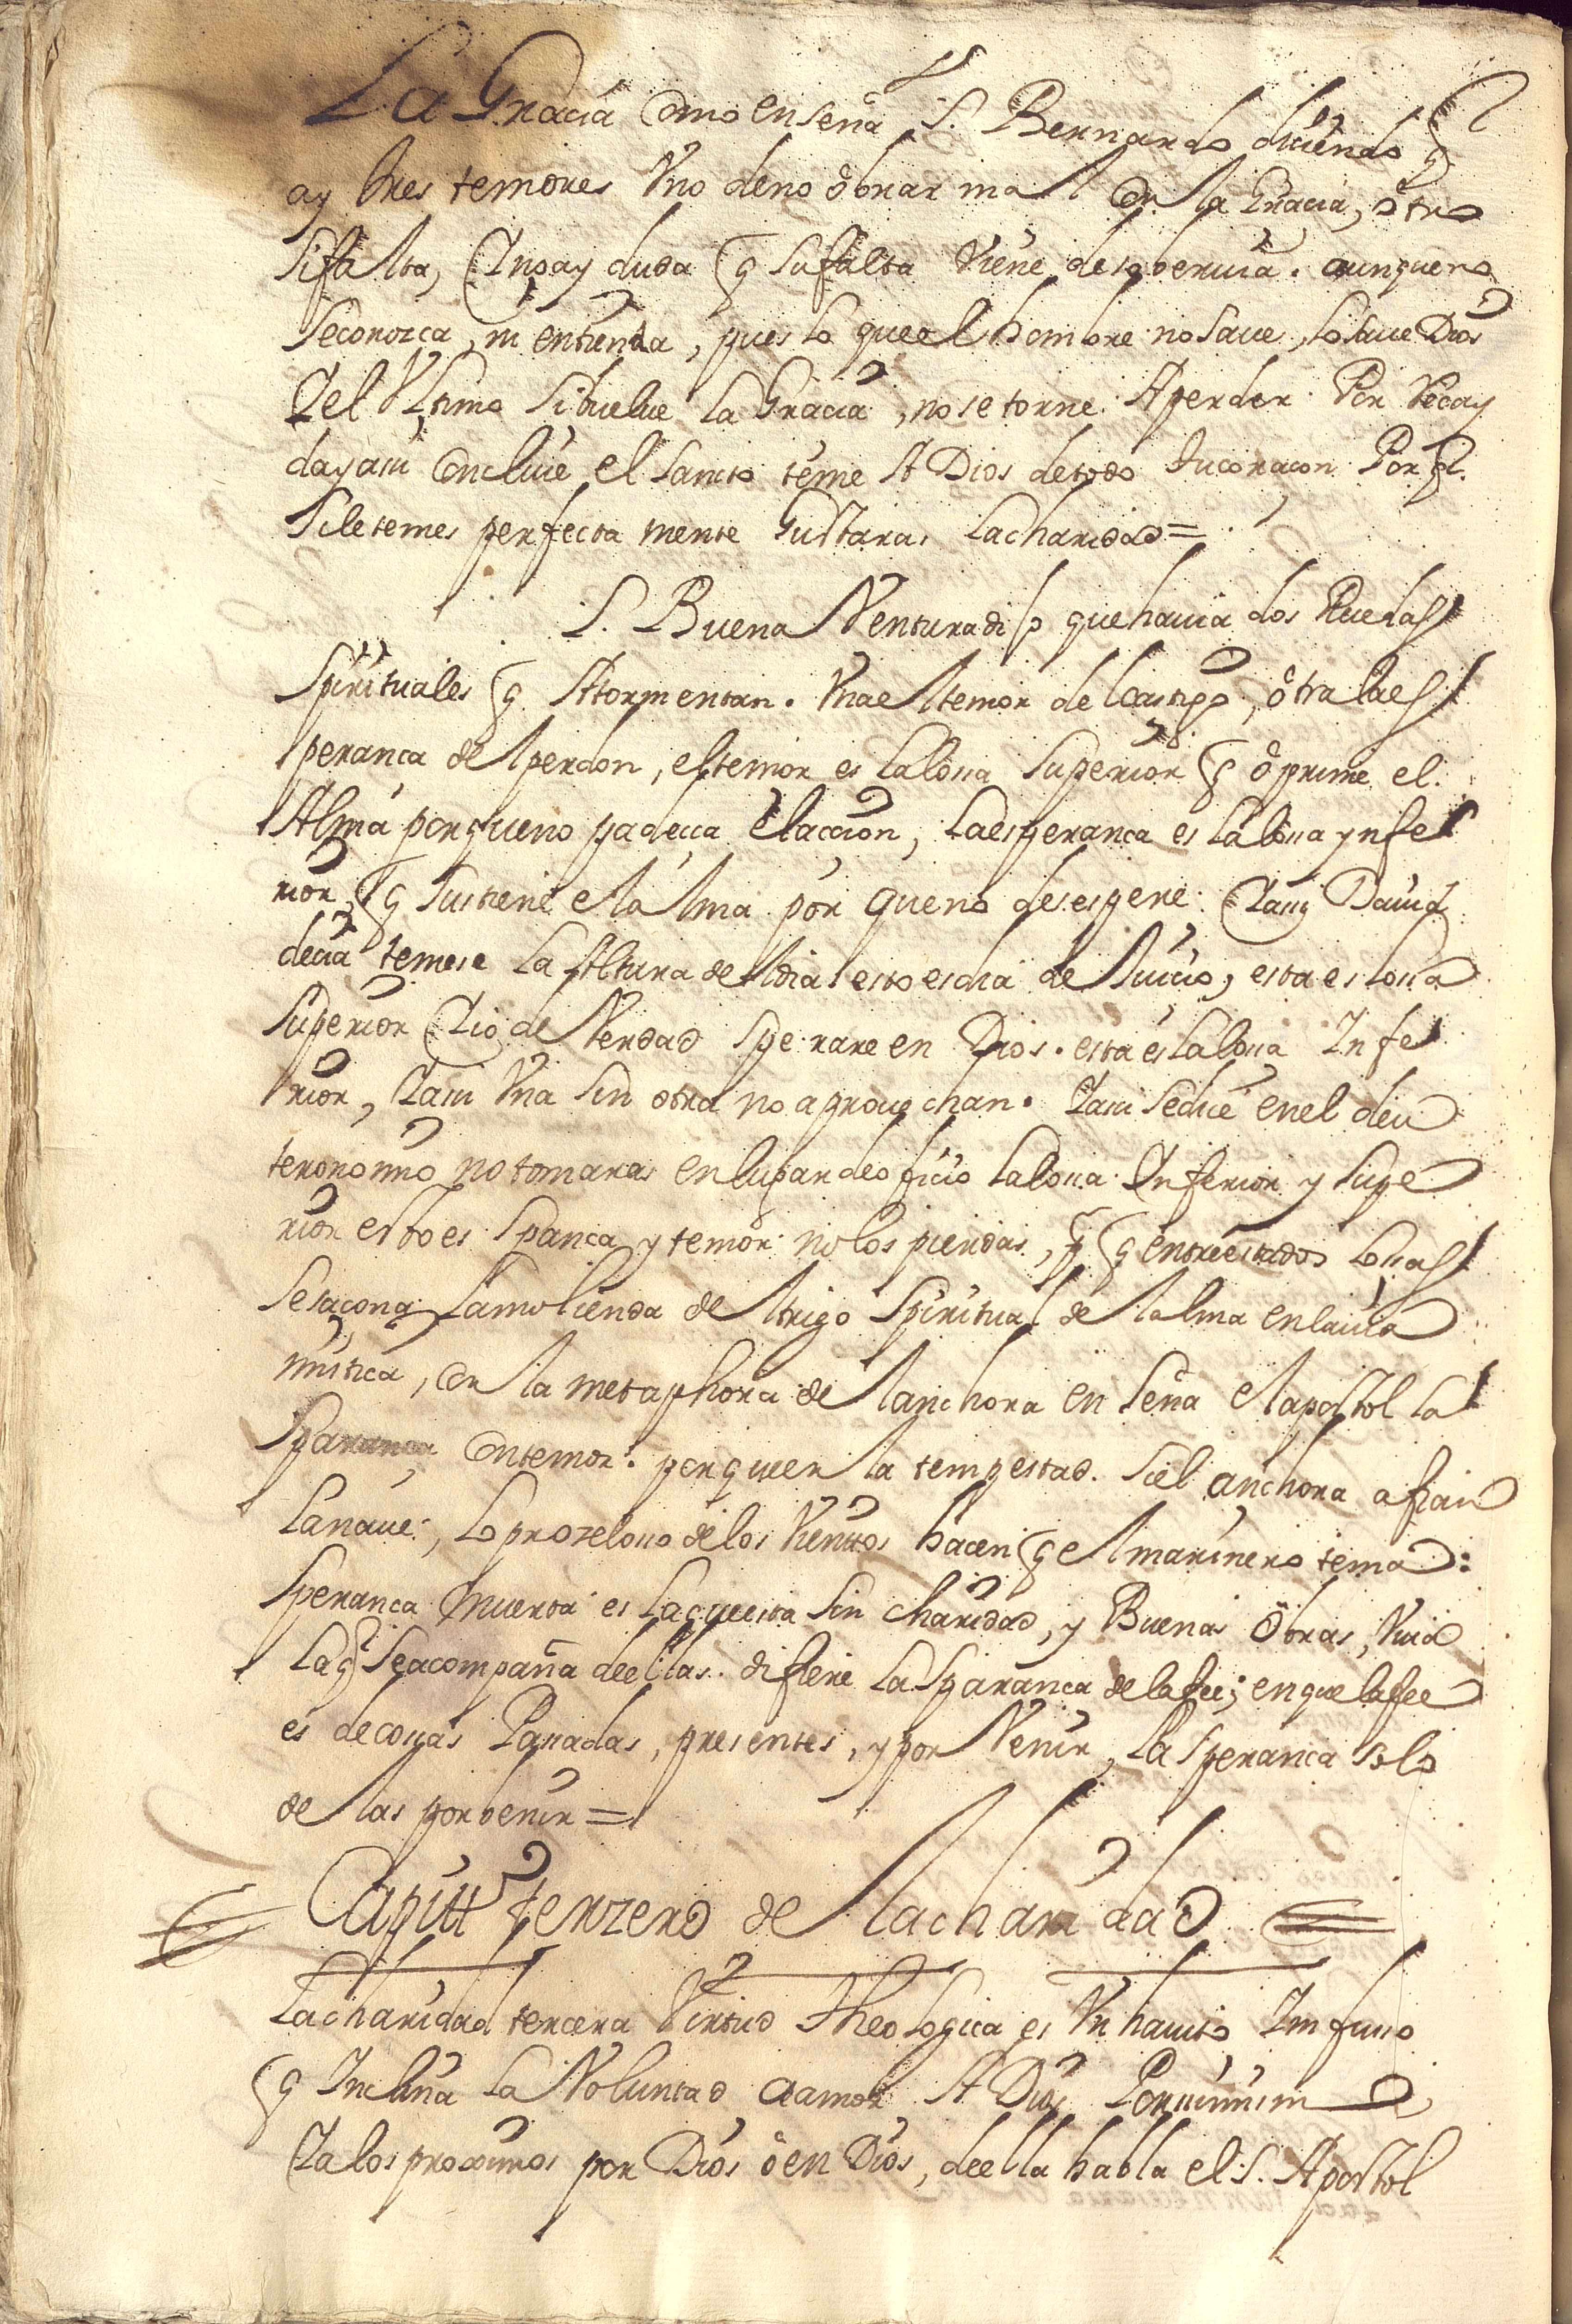 La Gracia como enseña S. Bernardo diciendo q
ay tres temores Vno deno obrar mal con la Gracia, otro
sifalta, Y no ay duda q sufalta Viene desobervia. aunqueno
seconozca, ni entienda, pues lo queel hombre no save, lo save Dios
Y el Vltimo sibuelve la Gracia, no se torne Aperder Por Recay
da, yassi Concluie el Sancto teme A Dios detodo tucoraçon Por q.
sile temes perfecta mente Gustaras lacharidad =
S. Buena Ventura dijo quehavia dos Ruedas
Spirituales q Atormentan. Vna el temor del castigo, otra laes
perança del perdon, el temor es lalosa superior q oprime el
Alma porqueno padezca elaccion, laesperança es lalosa ynfe
rior, q sustiene el alma por queno desespere. Y assi David
decia temese la Altura del dia esto es dia de Juicio, esta es losa
superior Y io de Verdad sperare en Dios. esta es lalosa Infe
rior, Y assi Vna sin otra no aprovechan. Y assi sedice enel deu
teronomio no tomaras enlugar deoficio lalosa Inferior y supe
rior esto es sperança y temor nolos pierdas, q entreestados losas
lamolienda del trigo spiritual del alma enlavida
mistica, con la metaphora del anchora enseña el apostol la
Sperança contemor. porqueen la tempestad. siel anchora afian
lanave, loprozeloso delos Vientos hacen q el marinero tema:
Sperança muerta es laquesta sin charidad, y Buenas obras, Viva
laq seacompaña deellas. difiere la Sparança delafee; enque lafee
es decosas Pasadas, presentes, y por Venir, la Sperança solo
de las porvenir =
Capitt.º terzero de la charidad
La charidad tercera Virtud Theologica es Vn havito Imfuso
q Inclina la Voluntad aamor A Dios Porsimismo
Y a los proximos por Dios ò en Dios, deella habla el S. Apostol